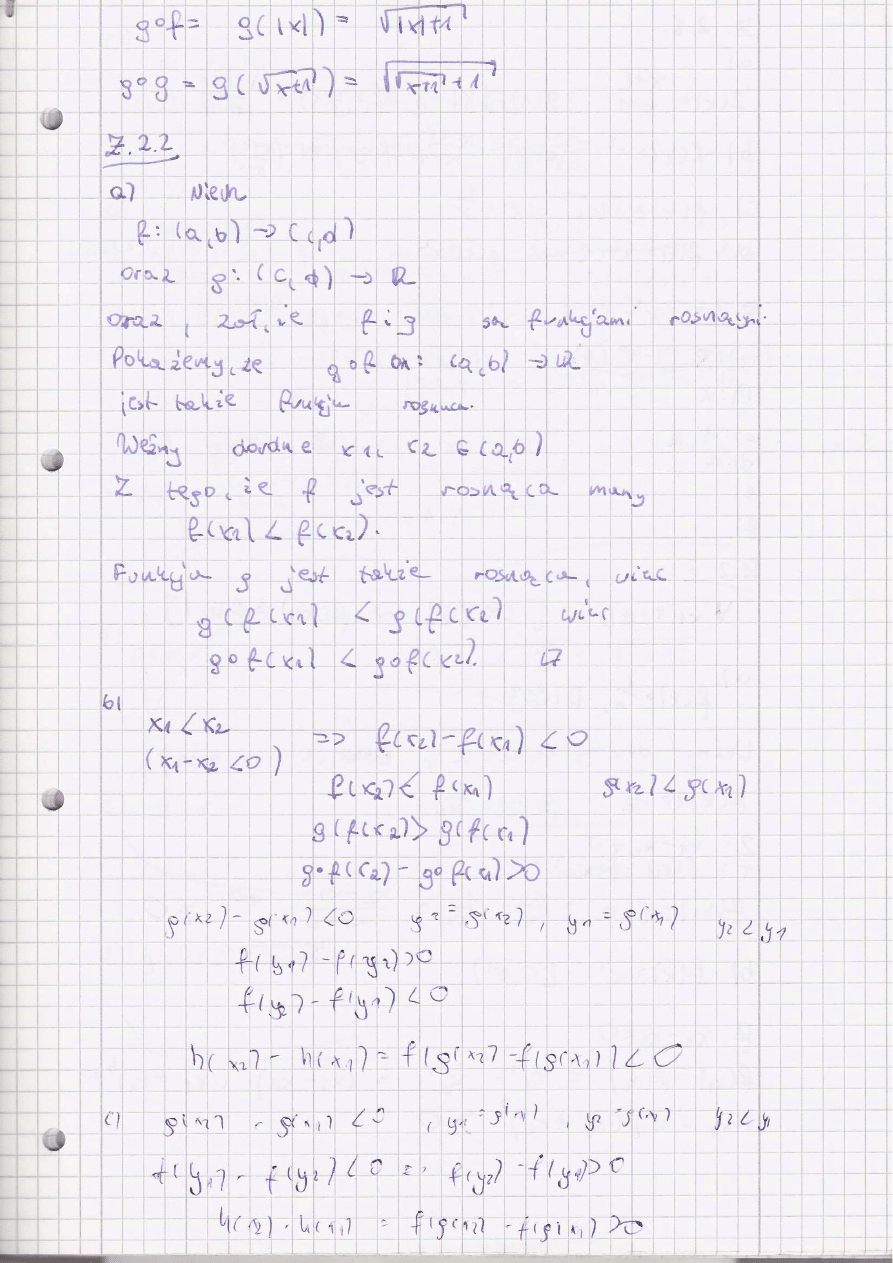 g∘f = g(|x|) = √(|x|+1)
g∘g = g(√(x+1)) = √(√(x+1)+1)
Z.2.2
a) Niech
f: (a,b) → (c,d)
oraz g: (c,d) → ℝ
oraz, zał, że f i g są funkcjami rosnącymi.
Pokażemy, że g∘f : (a,b) → ℝ
jest także funkcja rosnąca.
Weźmy dowolne x1, x2 ∈ (a,b)
Z tego, że f jest rosnąca mamy
f(x1) < f(x2).
Funkcja g jest także rosnąca, więc
g(f(x1) < g(f(x2) więc
g∘f(x1) < g∘f(x2). □
b)
x1 < x2 ⇒ f(x2)-f(x1) < 0
(x1-x2 < 0)
f(x2) < f(x1) g(x2) < g(x1)
g(f(x2) > g(f(x1)
g∘f(x2) - g∘f(x1) > 0
g(x2) - g(x1) < 0 y2 = g(x2), y1 = g(x1) y2 < y1
f(y1) - f(y2) > 0
f(y2) - f(y1) < 0
h(x2) - h(x1) = f(g(x2) - f(g(x1)) < 0
c) g(x2) - g(x1) < 0, y1 = g(x1), y2 = g(x2) y2 < y1
f(y1) - f(y2) < 0 = f(y2) - f(y1) > 0
h(x2) - h(x1) = f(g(x2) - f(g(x1) > 0